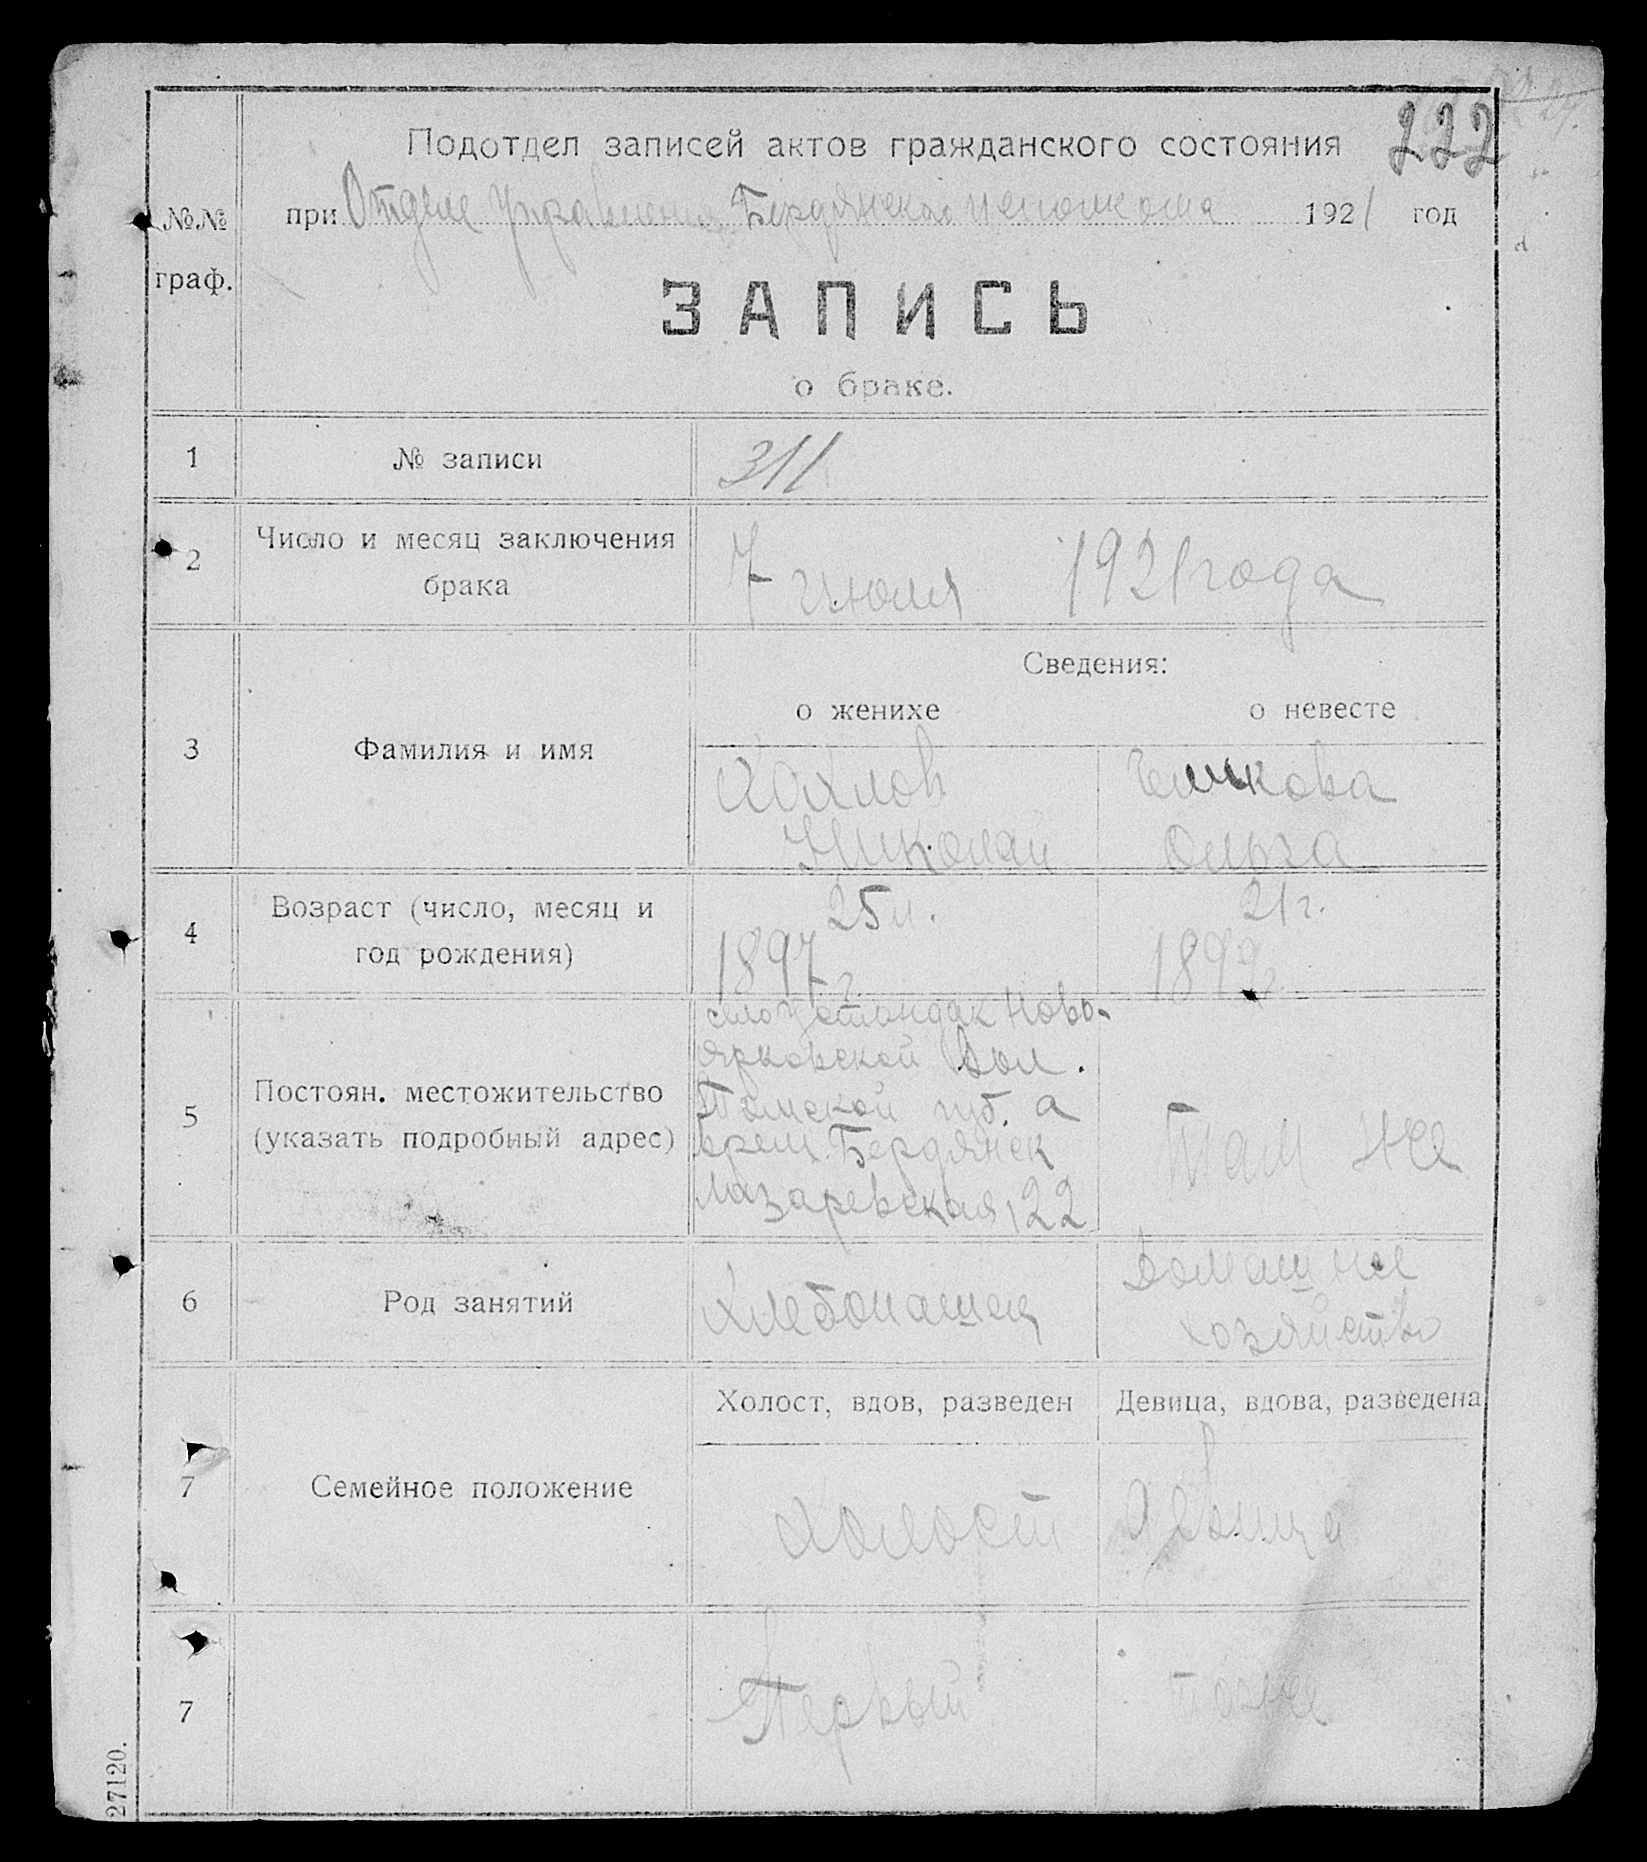 222
Подотдел записей актов гражданского состояния
при Отделе Управления Бердянского исполкома 1921 год
№№
граф.
ЗАПИСЬ
о браке.
1 № записи 311
2 Число и месяц заключения
брака
7 июля 1921 года
Сведения:
о женихе о невесте
3 Фамилия и имя
Хохлов
Николай
Ольга
4 Возраст (число, месяц и
год рождения)
25 л. 21 г.
1897 г. 1899
5 Постоян. местожительство
(указать подробный адрес)
село Ново-
ярковской вол.
Томской губ. а
врем. Бердянск
Лазаревская 122
Там же
6 Род занятий
Хлебопашец
Домашнее
хозяйство
7 Семейное положение
Холост, вдов, разведен Девица, вдова, разведена
холост девица
7
Первый тоже
27120.